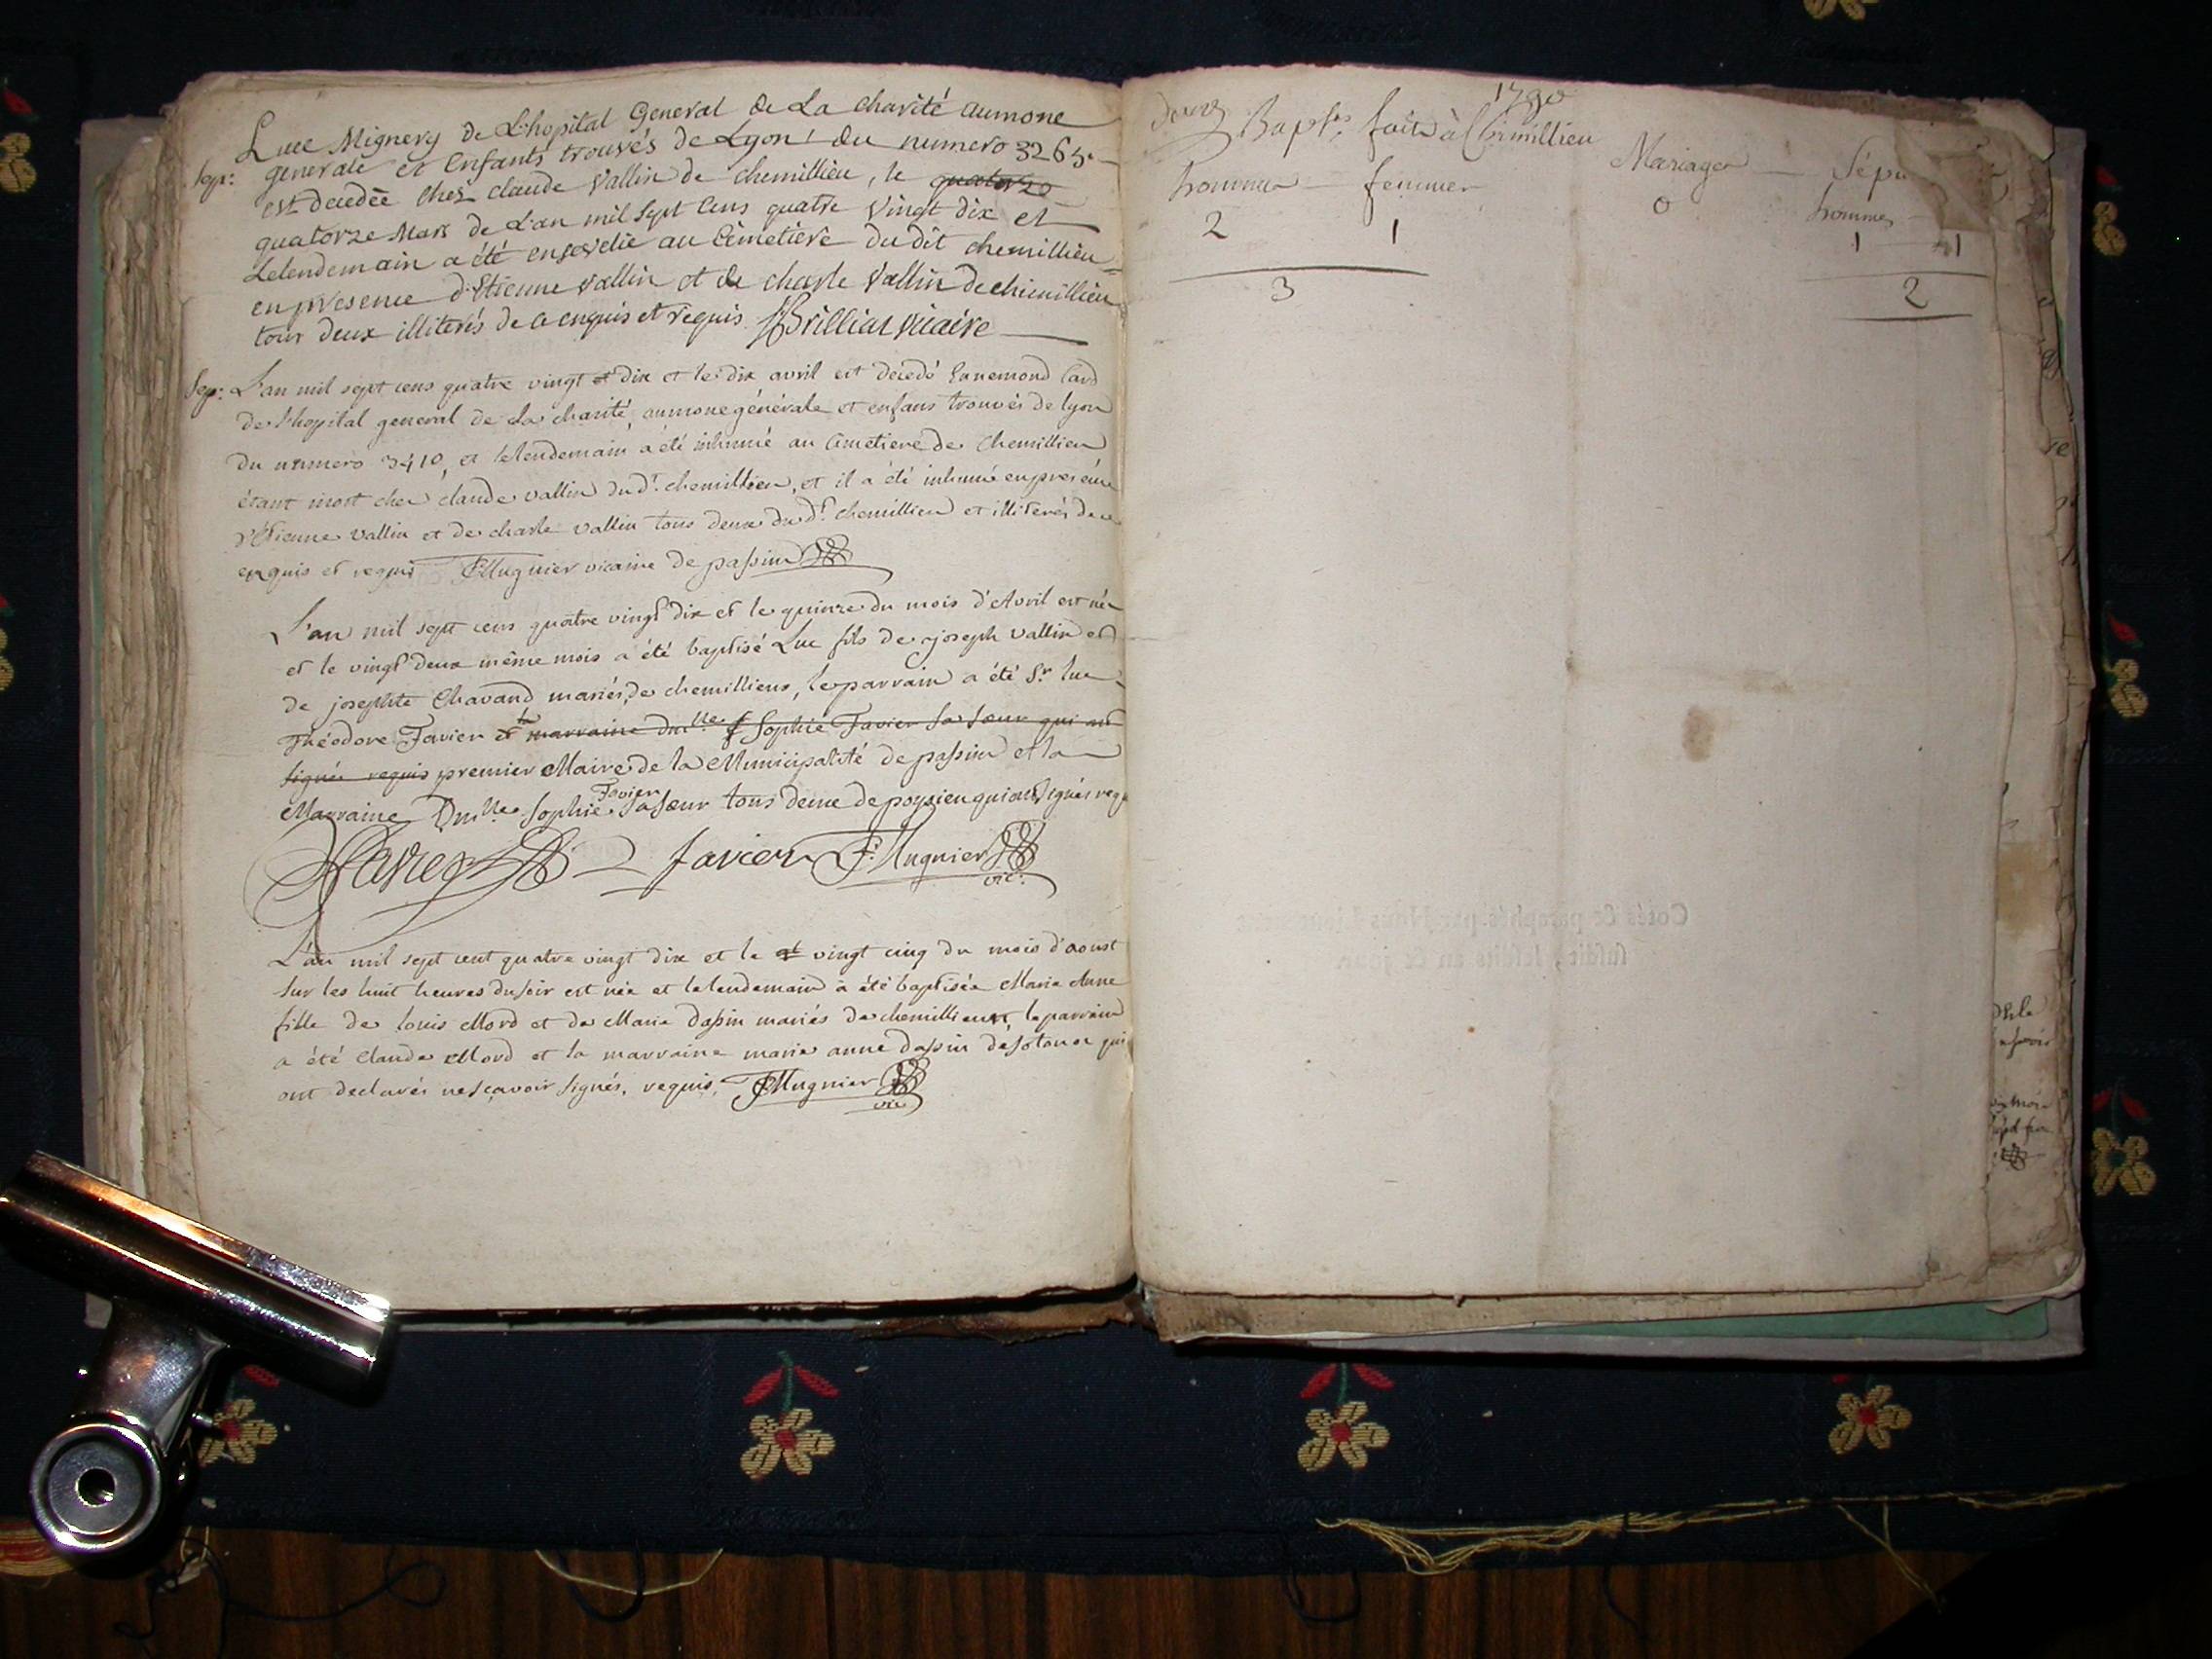 Luce Mignery de L'hopital General de La charité aumone
Sep: generale et Enfants trouvés de Lyon du numero 3265.
est decedée chez claude Vallin de chemillieu, le quatorze
quatorze Mars de L'an mil sept cens quatre vingt dix et
Lelendemain a été ensevelie au Cimetiere du dit chemillieu
en presence d'Etienne Vallin et de charle Vallin de chemillieu
tous deux illiterés de ce enquis et requis. Brilliat vicaire
Sep: L'an mil sept cens quatre vingt et dix et le dix avril est decedé Ennemond Card
de l'hopital general de la charité, aumone générale et enfans trouvés de lyon
du numero 3410, et le lendemain a été inhumé au Cimetiere de Chemillieu
étant mort chez claude vallin du dt. chemillieu, et il a été inhumé en presence
d'Etienne vallin et de charle vallin tous deux du dt. chemillieu et illiterés de ce
enquis et requis Mugnier vicaire de passin
L'an mil sept cens quatre vingt dix et le quinze du mois d'Avril est né
et le vingt deux même mois a été baptisé Luc fils de joseph vallin et
de josephte Chavand mariés de chemillieu, le parrain a été Sr. luc
Théodore Favier et la marraine dmlle Sophie Favier sa sœur qui ont
signés requis premier Maire de la Municipalité de passin et la
Favier
Marraine Dmlle Sophie sa sœur tous deux de poysieu qui ont signés requ
Favier Favier F. Mugnier
vic:
L'an mil sept cent quatre vingt dix et le vingt cinq du mois d'aoust
sur les huit heures du soir est née et le lendemain a été baptisée Marie Anne
fille de louis Mord et de Marie dapin mariés de chemillieu, le parrain
a été Claude Mord et la marraine marie anne dapin qui
ont declarés ne sçavoir signés, requis, Mugnier
vic
1790
Baptes. faits à Chemillieu
hommes femmes Mariages Sépu
2 1 0 hommes
1 1
3 2
Cotés & paraphés par Nous
susdit, & jour